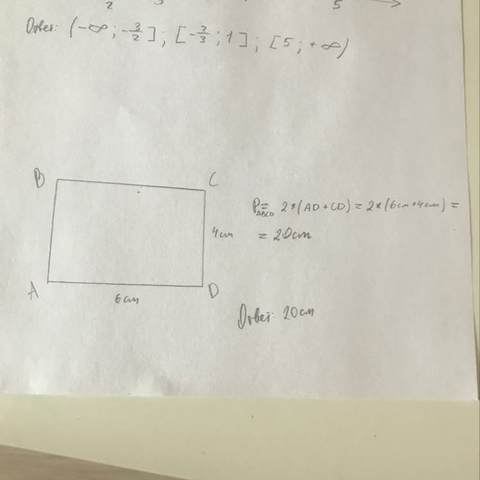 2 3 5
Ответ: (-∞; -3/2]; [-2/3; 1]; [5; +∞)
B C
P ABCD = 2*(AD+CD) = 2*(6cm+4cm) =
4cm = 20cm
A D
6cm
Ответ: 20cm